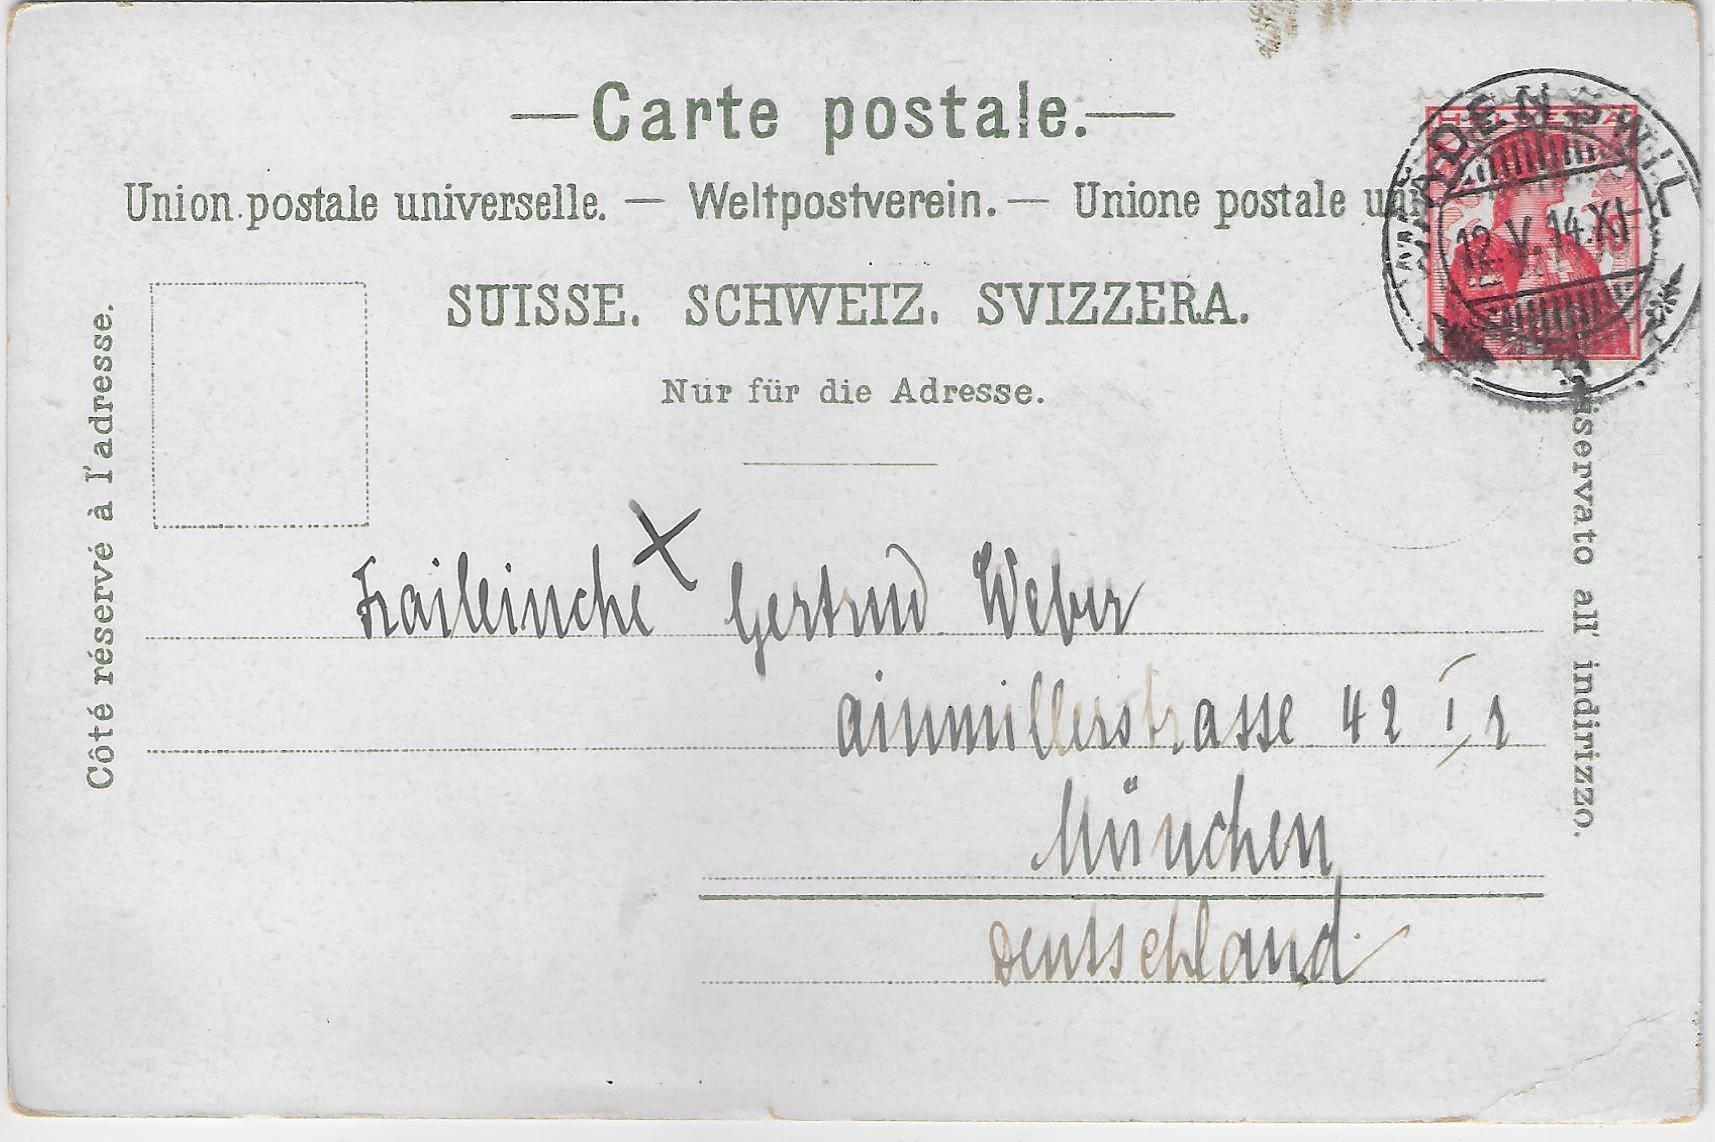 —Carte postale.—
Union postale universelle. — Weltpostverein. — Unione postale uni
SUISSE. SCHWEIZ. SVIZZERA.
Nur für die Adresse.
Côté réservé à l'adresse.
Riservato all' indirizzo.
HELVETIA
WÄDENSWIL
12.V.14.XI
Gertrud Weber
Ainmillerstrasse 42 I, 2
München
Deutschland.